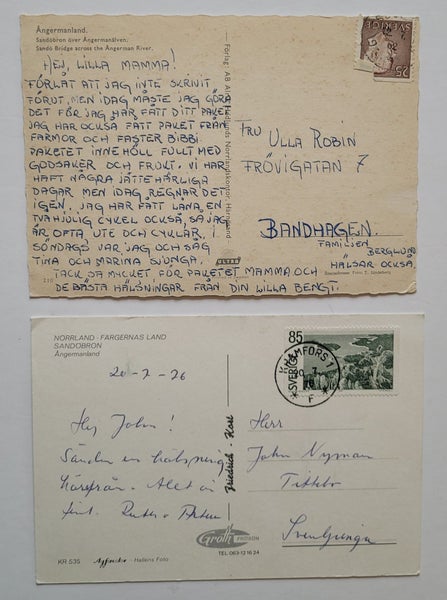 Ångermanland.
Sandöbron över Ångermanälven.
Sandö Bridge across the Ångerman River.
HEJ, LILLA MAMMA!
FÖRLÅT ATT JAG INTE SKRIVIT
FÖRUT, MEN IDAG MÅSTE JAG GÖRA
DET FÖR JAG HAR FÅTT DITT PAKET
JAG HAR OCKSÅ FÅTT PAKET FRÅN
FARMOR OCH FASTER BIBBI.
PAKETET INNEHÖLL FULLT MED
GODSAKER OCH FRUKT. VI HAR
HAFT NÅGRA JÄTTEHÄRLIGA
DAGAR MEN IDAG REGNAR DET
IGEN. JAG HAR FÅTT LÅNA EN
TVÅHJULIG CYKEL OCKSÅ, SÅ JAG
ÄR OFTA UTE OCH CYKLAR. I
SÖNDAGS VAR JAG OCH SÅG
TINA OCH MARINA SJUNGA.
TACK SÅ MYCKET FÖR PAKETET MAMMA OCH
DE BÄSTA HÄLSNINGAR FRÅN DIN LILLA BENGT.
210
ULTRA
SVERIGE
25
FRU ULLA ROBIN
FRÖVIGATAN 7
BANDHAGEN.
FAMILJEN
BERGLUND
HÄLSAR OCKSÅ.
NORRLAND - FÄRGERNAS LAND
SANDÖBRON
Ångermanland
20-7-76
Hej John!
Sänder en hälsning
härifrån. Allt är
fint.
KR 535
Hallens Foto
Friedrich - Karl
Grolh
TEL. 063-12 16 24
85
SVERIGE
KRAMFORS 1
20 7
76
F
Herr
John Nyman
Svenljunga